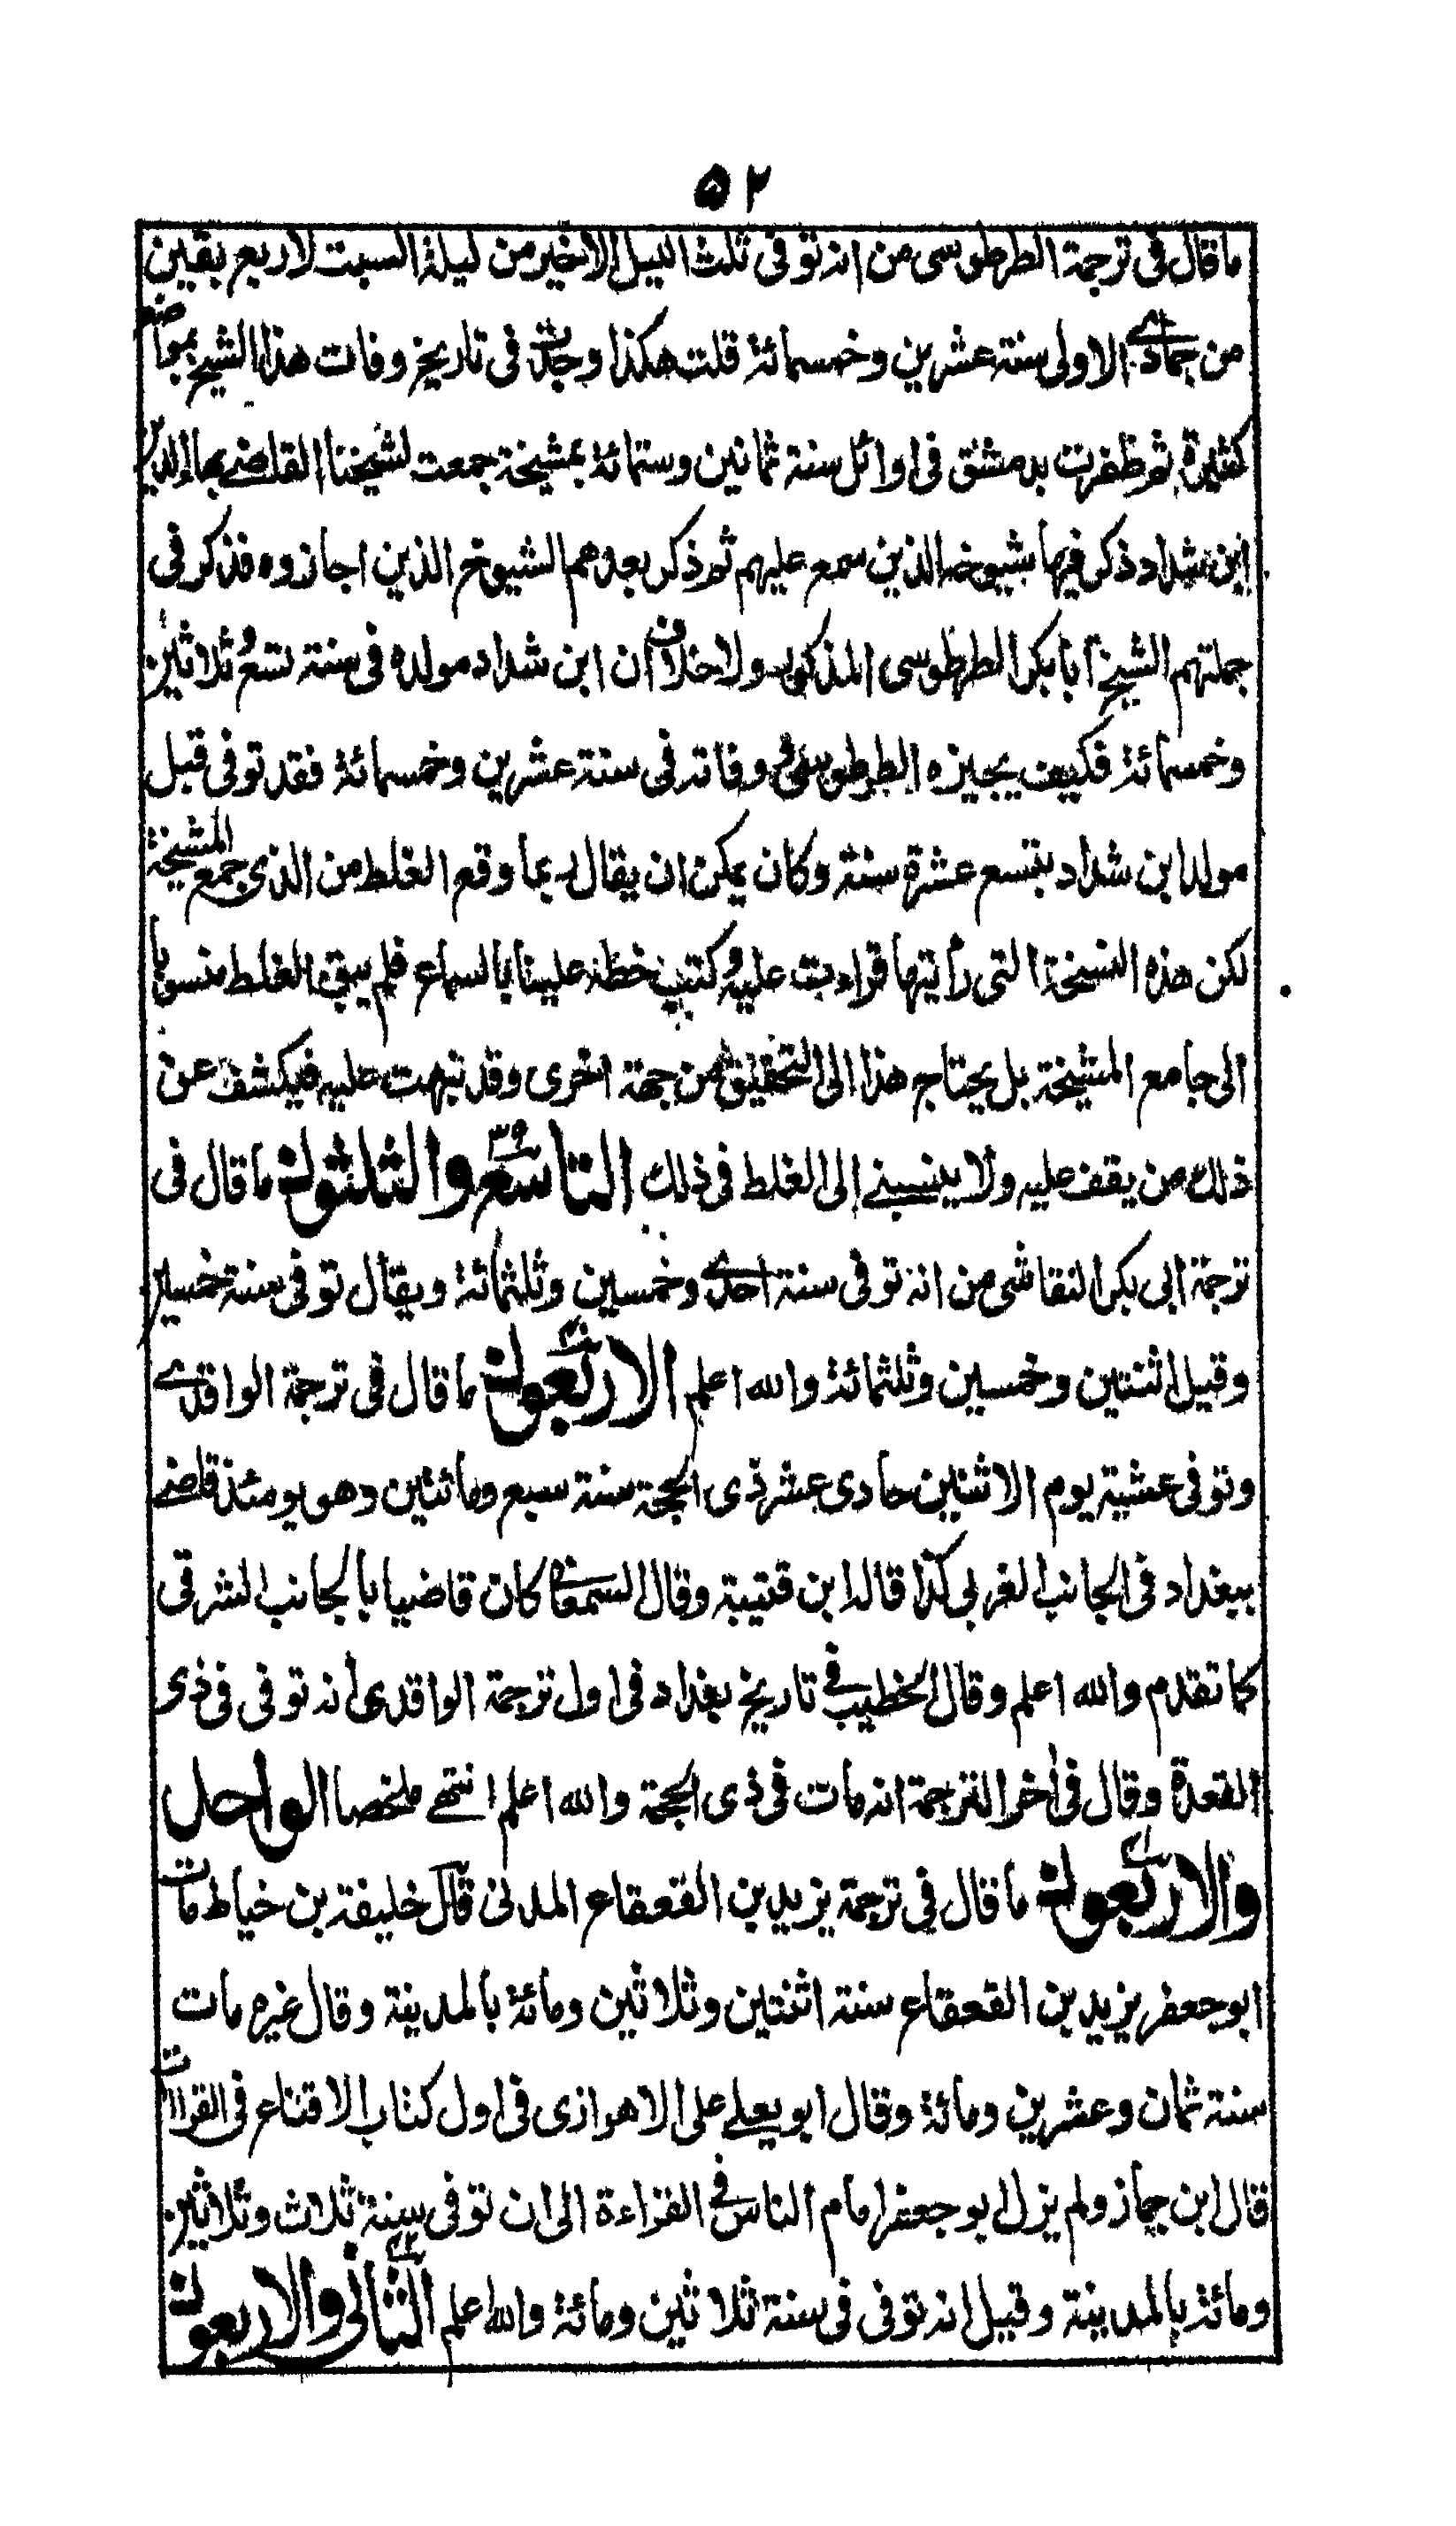 ٥٢
ما قال فى ترجمة الطرطوسى من انه توفى ثلث الليل الاخير من ليلة السبت لاربع بقين
من جمادے الاولى سنة عشرين وخمسمائة قلت هكذا وجدت فى تاريخ وفات هذا الشيخ بمواضع
كثيرة ثم ظفرت بدمشق فى اوائل سنة ثمانين وستمائة بمشيخة جمعت لشيخنا القاضے بهاء الدين
ابن شداد ذكر فيها شيوخه الذين سمع عليهم ثم ذكر بعدهم الشيوخ الذين اجازوه فذكر فى
جملتهم الشيخ ابا بكر الطرطوسى المذكور ولا خلاف ان ابن شداد مولده فى سنة تسع وثلاثين
وخمسمائة فكيف يجيزه الطرطوسى ووفاته فى سنة عشرين وخمسمائة فقد توفى قبل
مولد ابن شداد بتسع عشرة سنة وكان يمكن ان يقال ربما وقع الغلط من الذى جمع المشيخة
لكن هذه النسخة التى رأيتها قراءت عليه وكتب خطه علينا بالسماع فلم يبق الغلط منسوبا
الى جامع المشيخة بل يحتاج هذا الى التحقيق من جهة اخرى وقد نبهت عليه فيكشف عن
ذلك من يقف عليه ولا ينسبنے الى الغلط فى ذلك التاسع ٣٩ والثلثون ما قال فى
ترجمة ابى بكر النقاش من انه توفى سنة احدے وخمسين وثلثمائة ويقال توفى سنة خمسين
وقيل اثنتين وخمسين وثلثمائة والله اعلم الاربعون ٤٠ ما قال فى ترجمة الواقدے
وتوفى عشية يوم الاثنين حادى عشر ذى الحجة سنة سبع ومائتين وهو يومئذ قاضے
ببغداد فى الجانب الغربى كذا قاله ابن قتيبة وقال السمعانے كان قاضيا بالجانب الشرقى
كما تقدم والله اعلم وقال الخطيب فے تاريخ بغداد فى اول ترجمة الواقدى انه توفى فى ذى
القعدة وقال فى أخر الترجمة انه مات فى ذى الحجة والله اعلم انتهے ملخصا الواحد
والاربعون ٤١ ما قال فى ترجمة يزيد بن القعقاع المدنى قال خليفة بن خياط مات
ابو جعفر يزيد بن القعقاع سنة اثنتين وثلاثين ومائة بالمدينة وقال غيره مات
سنة ثمان وعشرين ومائة وقال ابو يعلے على الاهوازى فى اول كتاب الاقناع فى القراات
قال ابن جماز ولم يزل ابو جعفر امام الناس فے القراءة الى ان توفى سنة ثلاث وثلاثين
ومائة بالمدينة وقيل انه توفى فى سنة ثلاثين ومائة والله اعلم الثانى والاربعون ٤٢